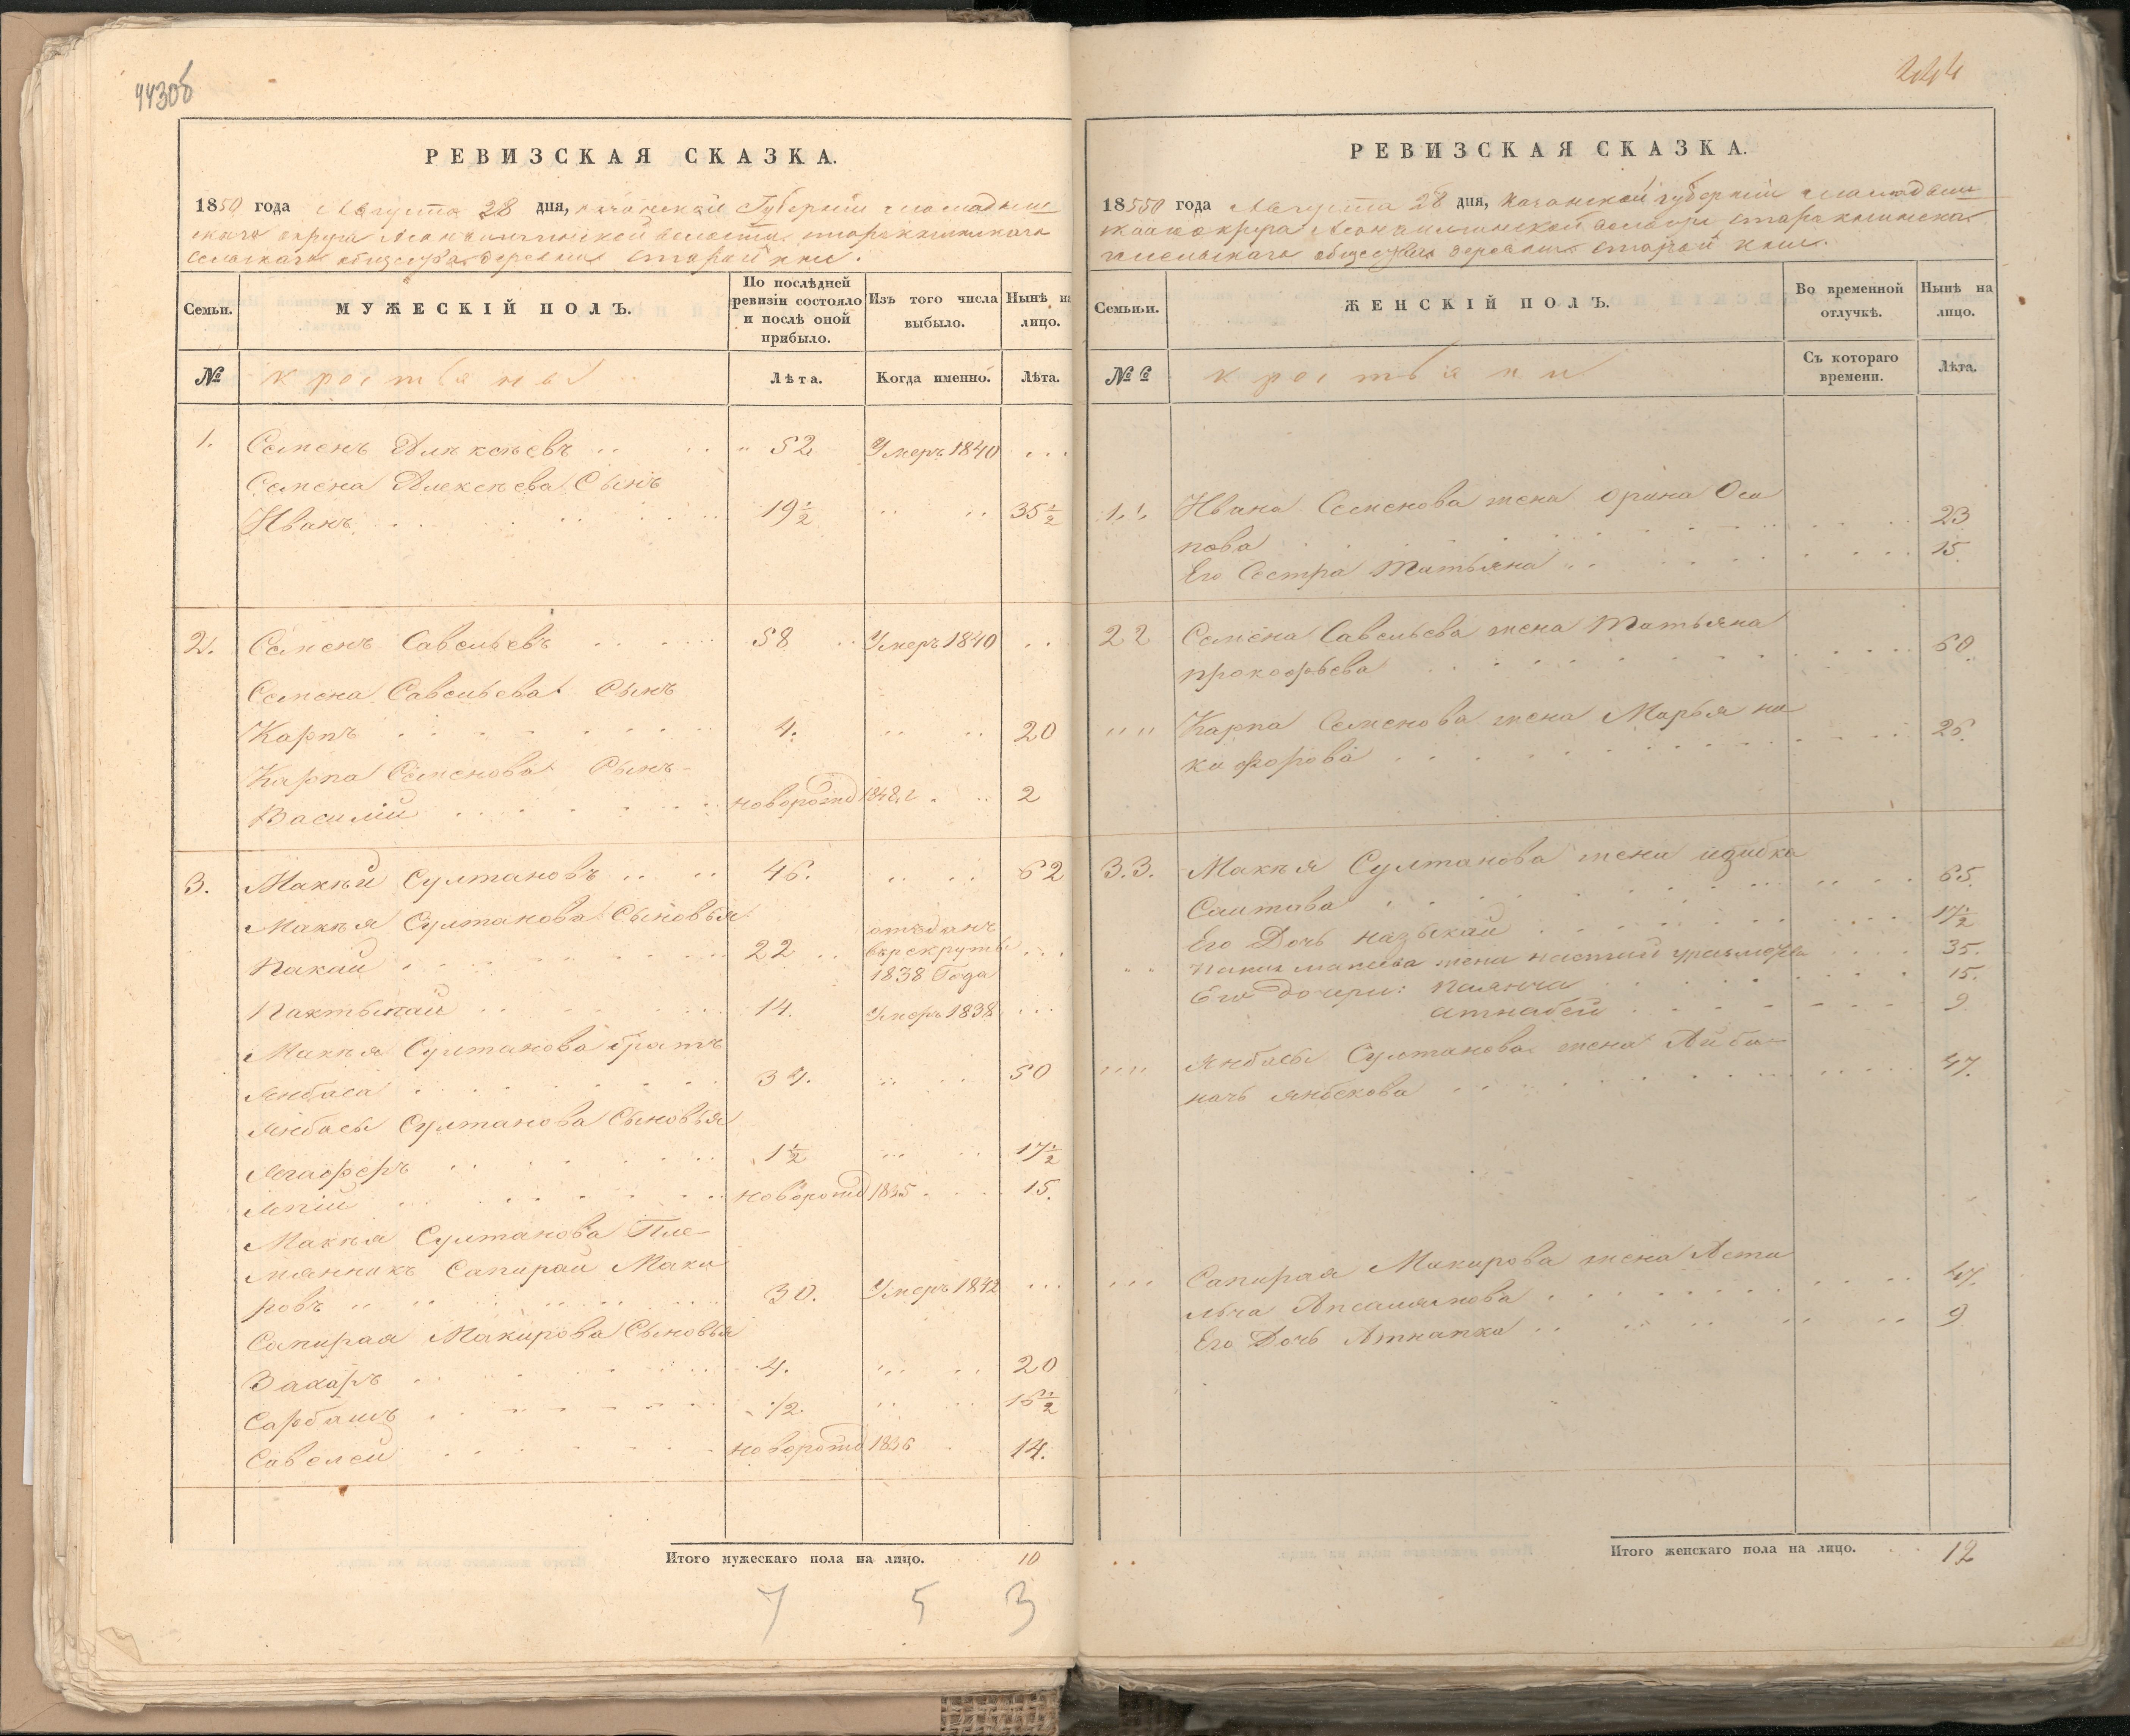 443об
РЕВИЗСКАЯ СКАЗКА.
1850 года Августа 28 дня, казанской Губерніи мамадыш
скаго округа волости старокнинскаго
сельскаго общества деревни старой кни.
Семьи. МУЖЕСКІЙ ПОЛЪ. По послѣдней ревизіи состояло и послѣ оной прибыло. Изъ того числа выбыло. Нынѣ на лицо.
№ крестьяны Лѣта. Когда именно. Лѣта.
1. Семенъ Алексѣевъ 52 Умеръ 1840
Семена Алексѣева Сынъ
Иванъ 19½ 35½
2. Семенъ Савельевъ 58 Умеръ 1840
Семена Савельева Сынъ
Карпъ 4. 20
Карпа Семенова Сынъ
Василій новорожд 1848 г 2
3. Макѣй Султановъ 46. 62
Макѣя Султанова Сыновья
Пакай 22 отъданъ
врекруты
1838 Года
Пактыкай 14. Умеръ 1838
Макѣя Султанова братъ
Янбаса 34. 50
Янбасы Султанова Сыновья
Ягаферъ 1½ 17½
Япій новорожд 1835 15.
Макѣя Султанова Пле-
мянникъ Сапирай Маки
ровъ 30. Умеръ 1842
Сапирая Макирова Сыновья
Захаръ 4. 20
Сарбашъ ½ 16½
Савелей новорожд 1836 14.
Итого мужескаго пола на лицо. 10
7 5 3
244
РЕВИЗСКАЯ СКАЗКА.
18550 года Августа 28 дня, Казанской губерніи мамадыш
скаго округа волости старокнинска
сельскаго общества деревни старой кни.
Семьи. ЖЕНСКІЙ ПОЛЪ. Во временной отлучкѣ. Нынѣ на лицо.
№ крестьяни Съ котораго времени. Лѣта.
1. Ивана Семенова жена орина Оси
пова 23
Его Сестра Татьяна 15
2 2 Семена Савельева жена Татьяна
прокофьева 60.
Карпа Семенова жена Марья ни
кифорова 26.
3.3. Макѣя Султанова жена
Саитова 65.
Его Дочь назыкай 17½
жена 35.
Его дочери: 15.
атнабей 9
Янбасы Султанова жена Айба-
начь янбекова 47.
Сапирая Макирова жена Асти
47.
Его Дочь Атнапка 9
Итого женскаго пола на лицо. 12